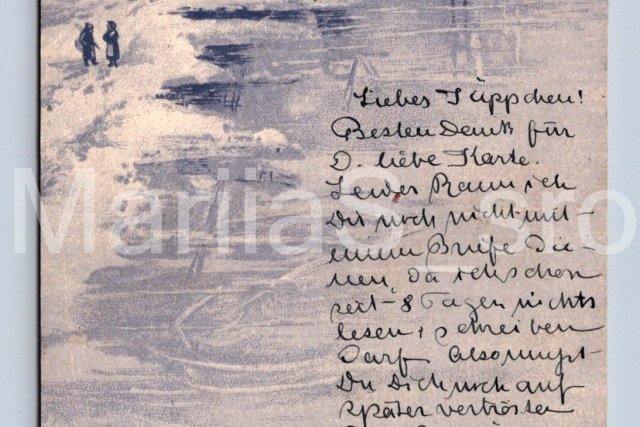 Liebes Süppchen!
Besten Dank für
D. liebe Karte.
Leider kann ich
Dir noch nicht mit
einem Briefe Die-
nen, da ich schon
seit 8 Tagen nichts
lesen + schreiben
Darf. Also musst
Du Dich noch auf
später vertrösten
MariiaS_sro